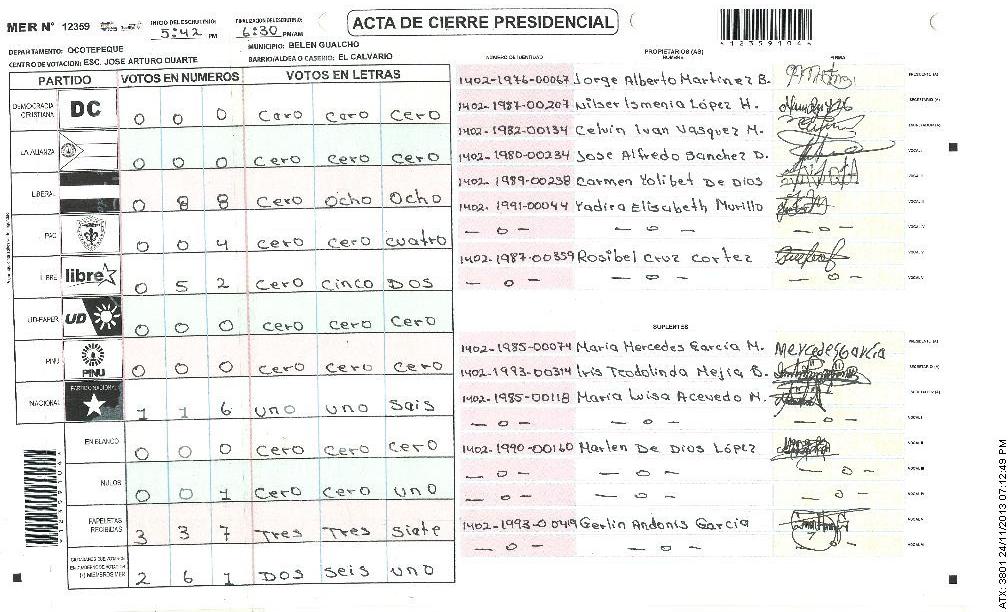 MER N° 12359
INICIO DEL ESCRUTINIO: 5:42 PM
FINALIZACION DEL ESCRUTINIO: 6:30 PM/AM
ACTA DE CIERRE PRESIDENCIAL
DEPARTAMENTO: OCOTEPEQUE
MUNICIPIO: BELEN GUALCHO
CENTRO DE VOTACION: ESC. JOSE ARTURO DUARTE
BARRIO/ALDEA O CASERIO: EL CALVARIO
PARTIDO VOTOS EN NUMEROS VOTOS EN LETRAS
DEMOCRACIA CRISTIANA DC 0 0 0 Caro caro cero
LA ALIANZA 0 0 0 cero cero cero
LIBERAL 0 8 8 cero ocho ocho
PAC 0 0 4 cero cero cuatro
LIBRE libre 0 5 2 cero cinco Dos
UD-FAPER UD 0 0 0 cero cero cero
PINU PINU 0 0 0 cero cero cero
NACIONAL PARTIDO NACIONAL 1 1 6 uno uno sais
EN BLANCO 0 0 0 cero cero cero
NULOS 0 0 1 cero cero uno
PAPELETAS RECIBIDAS 3 3 7 Tres Tres siete
(+) MIEMBROS MER 2 6 1 DOS seis uno
PROPIETARIOS (AS)
NUMERO DE IDENTIDAD NOMBRE FIRMA
1402-1976-00067 Jorge Alberto Martinez B. PRESIDENTE (A)
1402-1987-00207 Wilser Ismenia López H. SECRETARIO (A)
1402-1982-00134 Celvin Ivan Vasquez M. ESCRUTADOR (A)
1402-1980-00234 Jose Alfredo Sanchez D. VOCAL I
1402-1989-00238 Carmen Yolibet De Dios VOCAL II
1402-1991-00044 Yadira Elisabeth Murillo VOCAL III
- 0 - - 0 - - 0 - VOCAL IV
1402-1987-00359 Rosibel Cruz Cortez VOCAL V
- 0 - - 0 - - 0 - VOCAL VI
SUPLENTES
1402-1985-00074 Maria Mercedes Garcia M. Mercedes Garcia PRESIDENTE (A)
1402-1993-00314 Iris Teodolinda Mejia B. SECRETARIO (A)
1402-1985-00118 Maria Luisa Acevedo M. ESCRUTADOR (A)
- 0 - - 0 - - 0 - VOCAL I
1402-1990-00160 Marlen De Dios López VOCAL II
- 0 - - 0 - - 0 - VOCAL III
- 0 - - 0 - - 0 - VOCAL IV
1402-1993-00419 Gerlin Andonis Garcia VOCAL V
- 0 - - 0 - VOCAL VI
ATX: 3801 24/11/2013 07:12:49 PM